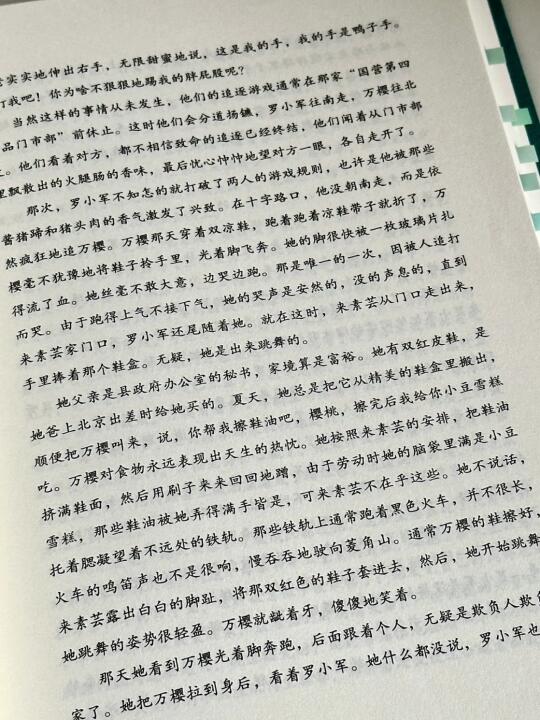 实实地伸出右手，无限甜蜜地说，这是我的手，我的手是鸭子手。
打我吧！你为啥不狠狠地踢我的胖屁股呢？
当然这样的事情从未发生，他们的追逐游戏通常在那家“国营第四
品门市部”前休止。这时他们会分道扬镳，罗小军往南走，万樱往北
。他们看着对方，都不相信致命的追逐已经终结，他们闻着从门市部
里飘散出的火腿肠的香味，最后忧心忡忡地望对方一眼，各自走开了。
那次，罗小军不知怎的就打破了两人的游戏规则，也许是他被那些
酱猪蹄和猪头肉的香气激发了兴致。在十字路口，他没朝南走，而是依
然疯狂地追万樱。万樱那天穿着双凉鞋，跑着跑着凉鞋带子就折了，万
樱毫不犹豫地将鞋子拎手里，光着脚飞奔。她的脚很快被一枚玻璃片扎
得流了血。她丝毫不敢大意，边哭边跑。那是唯一的一次，因被人追打
而哭。由于跑得上气不接下气，她的哭声是安然的，没的声息的，直到
来素芸家门口，罗小军还尾随着她。就在这时，来素芸从门口走出来，
手里捧着那个鞋盒。无疑，她是出来跳舞的。
她父亲是县政府办公室的秘书，家境算是富裕。她有双红皮鞋，是
她爸上北京出差时给她买的。夏天，她总是把它从精美的鞋盒里搬出，
顺便把万樱叫来，说，你帮我擦鞋油吧，樱桃，擦完后我给你小豆雪糕
吃。万樱对食物永远表现出天生的热忱。她按照来素芸的安排，把鞋油
挤满鞋面，然后用刷子来来回回地蹭，由于劳动时她的脑袋里满是小豆
雪糕，那些鞋油被她弄得满手皆是，可来素芸不在乎这些。她不说话，
托着腮凝望着不远处的铁轨。那些铁轨上通常跑着黑色火车，并不很长，
火车的鸣笛声也不是很响，慢吞吞地驶向菱角山。通常万樱的鞋擦好，
来素芸露出白白的脚趾，将那双红色的鞋子套进去，然后，她开始跳舞
她跳舞的姿势很轻盈。万樱就龇着牙，傻傻地笑着。
那天她看到万樱光着脚奔跑，后面跟着个人，无疑是欺负人欺负
家了。她把万樱拉到身后，看着罗小军。她什么都没说，罗小军也